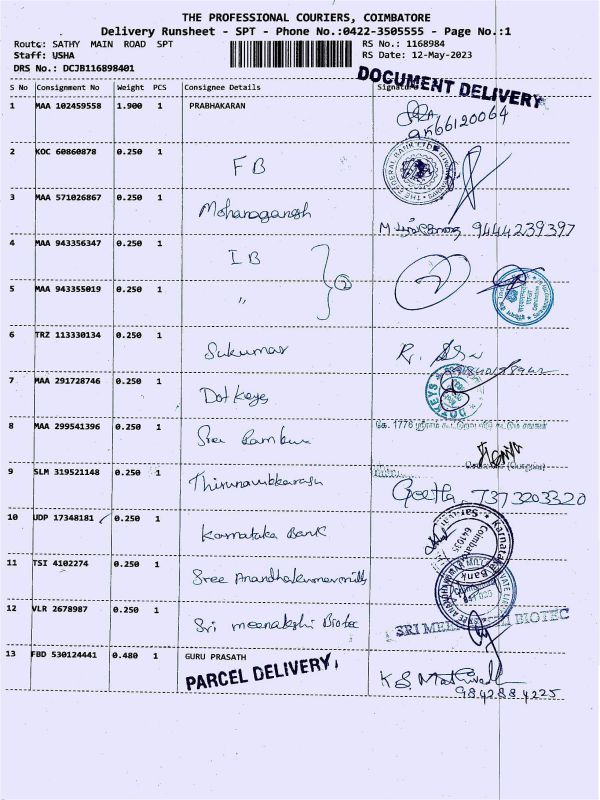 THE PROFESSIONAL COURIERS, COIMBATORE
Delivery Runsheet - SPT - Phone No.:0422-3505555 - Page No.:1
Route: SATHY MAIN ROAD SPT RS No.: 1168984
Staff: USHA RS Date: 12-May-2023
DRS No.: DCJB116898401
DOCUMENT DELIVERY
S No Consignment No Weight PCS Consignee Details Signature
1 MAA 102459558 1.900 1 PRABHAKARAN
9566120064
2 KOC 60860878 0.250 1 FB
THE FEDERAL BANK LTD
3 MAA 571026867 0.250 1 Mohanaganesh
9444239397
4 MAA 943356347 0.250 1 IB
2
5 MAA 943355019 0.250 1 "
6 TRZ 113330134 0.250 1 Sukumar
7 MAA 291728746 0.250 1 Dot Keys
DOTKEYS
8 MAA 299541396 0.250 1 Sree
கே. 1776
9 SLM 319521148 0.250 1 Thirunavukkarasu
Geetha 7373203320
10 UDP 17348181 0.250 1 Karnataka Bank
Karnataka Bank
Coimbatore
641035
11 TSI 4102274 0.250 1 Sree Anandhakumar mills
12 VLR 2678987 0.250 1 Sri meenakshi Biotec
SRI BIOTEC
13 FBD 530124441 0.480 1 GURU PRASATH
PARCEL DELIVERY
K.S. 
9842884225